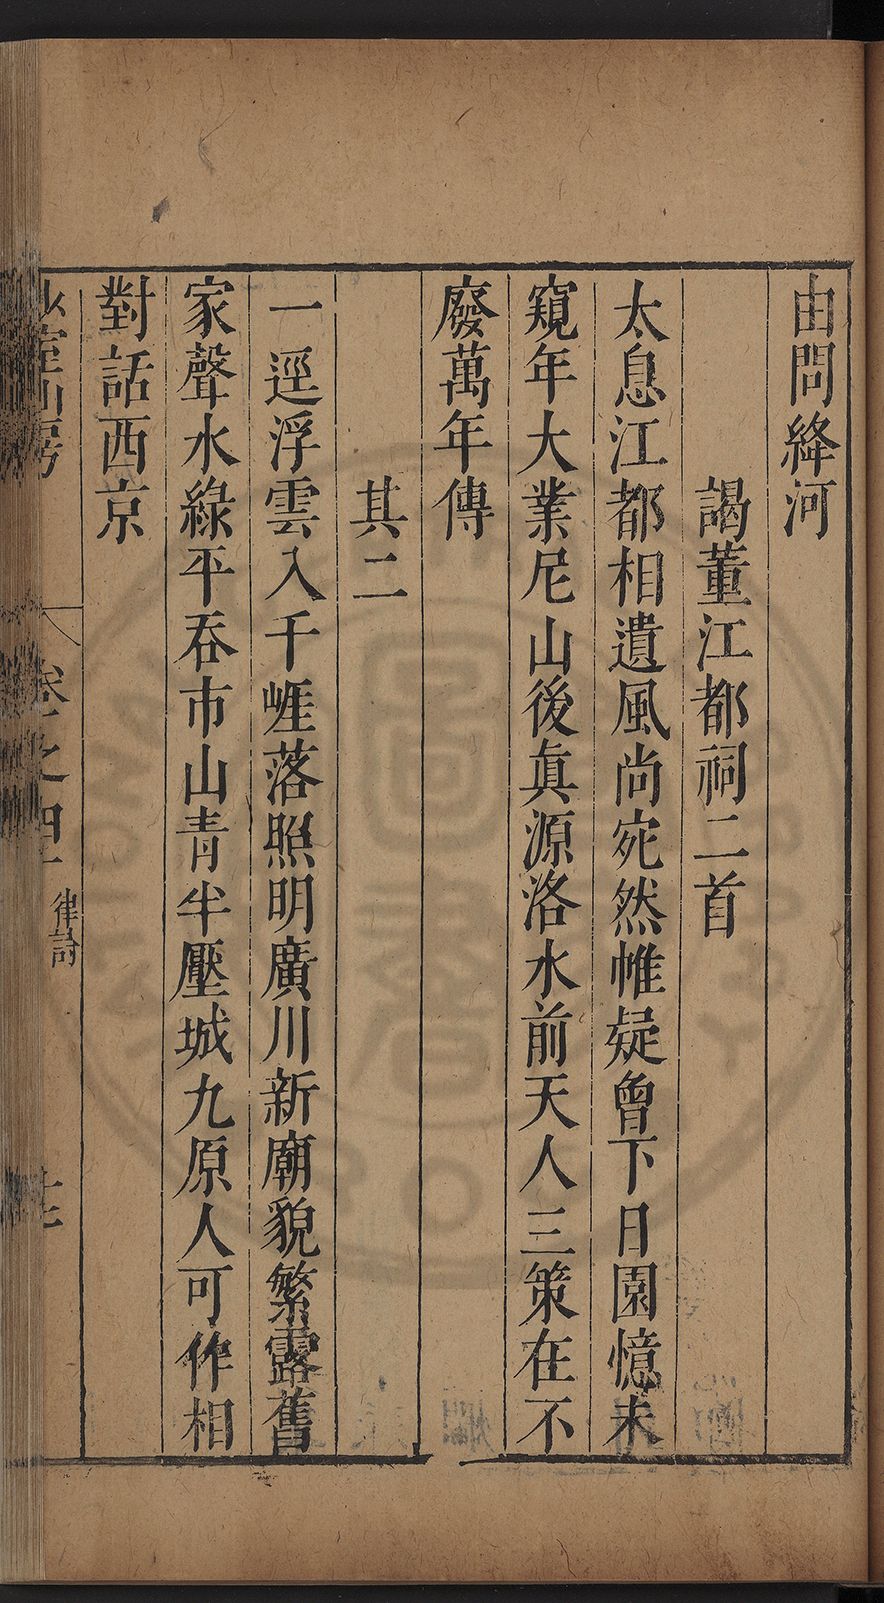 由問絳河
謁董江都祠二首
太息江都相遺風尚宛然帷疑曾下日園憶未
窺年大業尼山後眞源洛水前天人三策在不
廢萬年傳
其二
一逕浮雲入千崕落照明廣川新廟貌繁露舊
家聲水綠平吞市山青半壓城九原人可作相
對話西京
室山房
卷之四
律詩